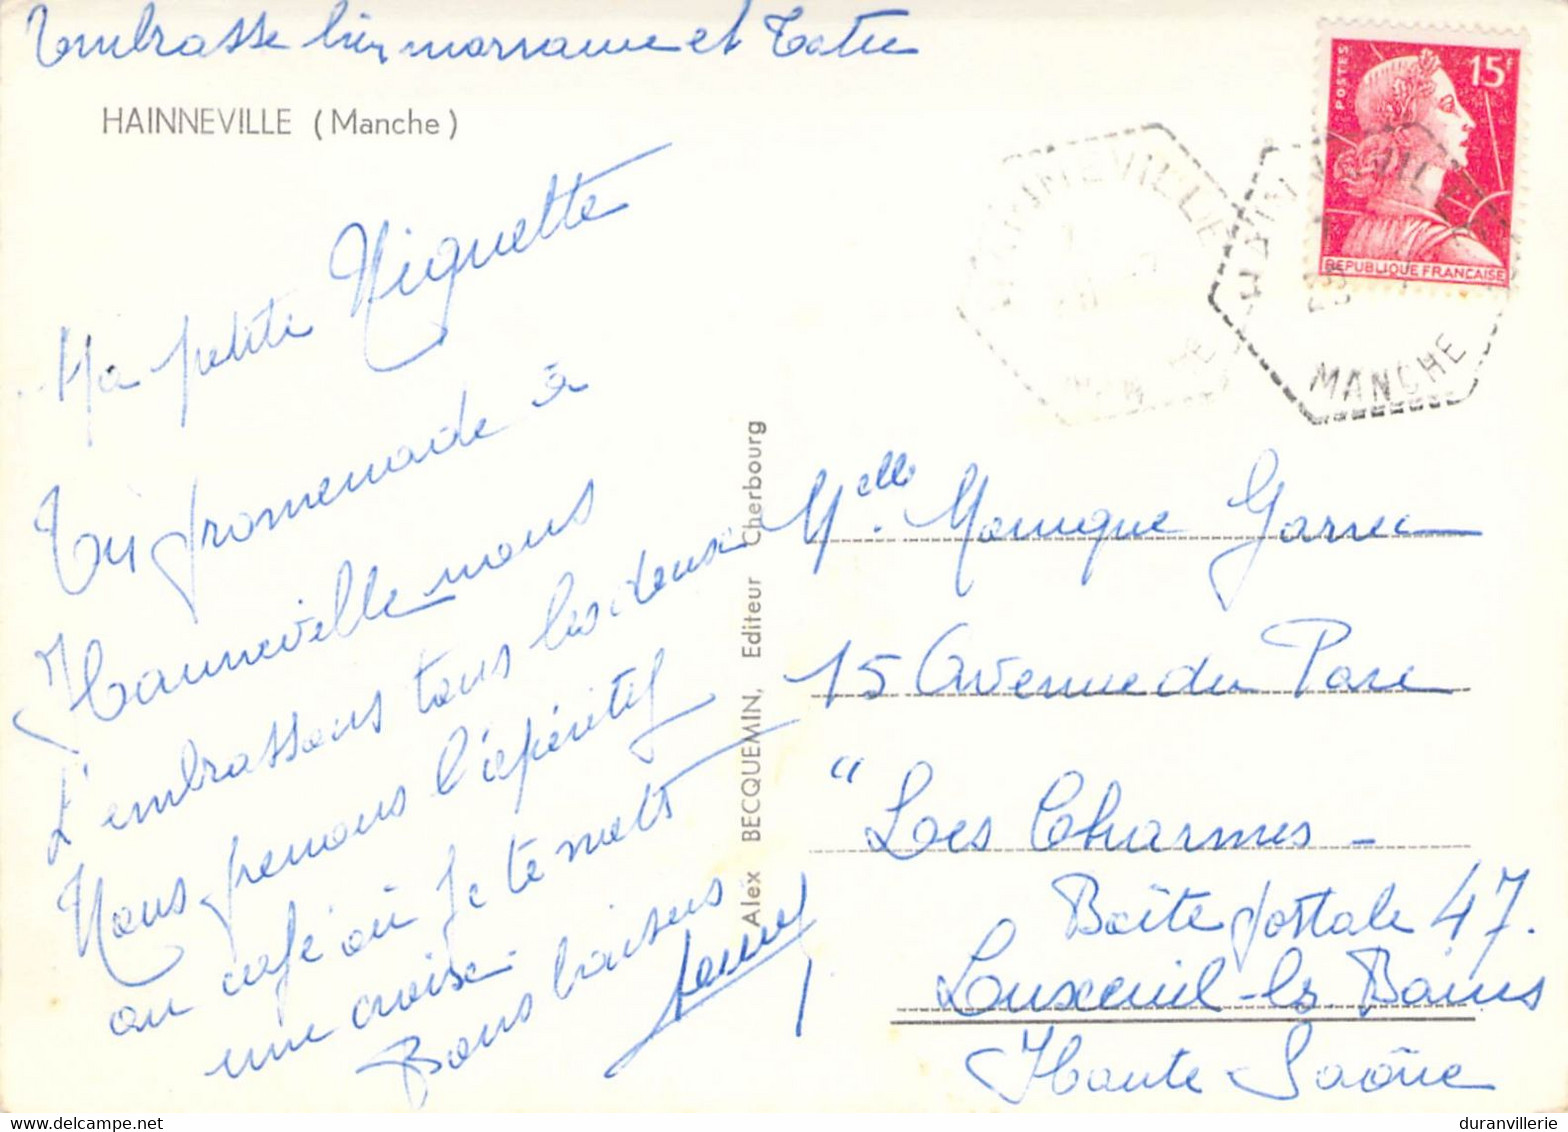 Embrasse bien maman et Tatie
HAINNEVILLE (Manche)
Ma petite Niquette
En promenade à
Hainneville nous
t'embrassons tous les deux
Nous prenons l'apéritif
au café où je te mets
une croix.
Bons baisers
POSTES
15F
REPUBLIQUE FRANCAISE
HAINNEVILLE
MANCHE
Alex BECQUEMIN, Editeur Cherbourg
Melle. Monique Garrec
15 Avenue du Parc
"Les Charmes -
Boîte postale 47.
Luxeuil-les-Bains
Haute Saône
www.duranvillerie